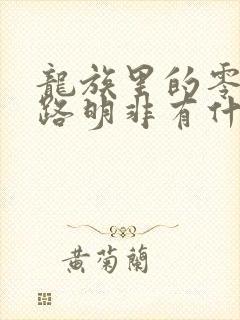 龍族里的零
路明非有什
黄菊蘭